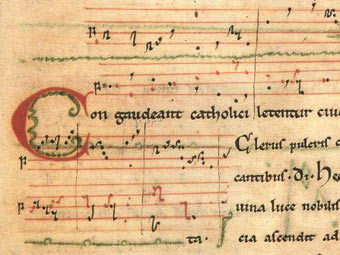 Con gaudeant catholici letentur ciue
Clerus pulcris c
cantibus. d. he
uina luce nobilis
ta. cia ascendit ad